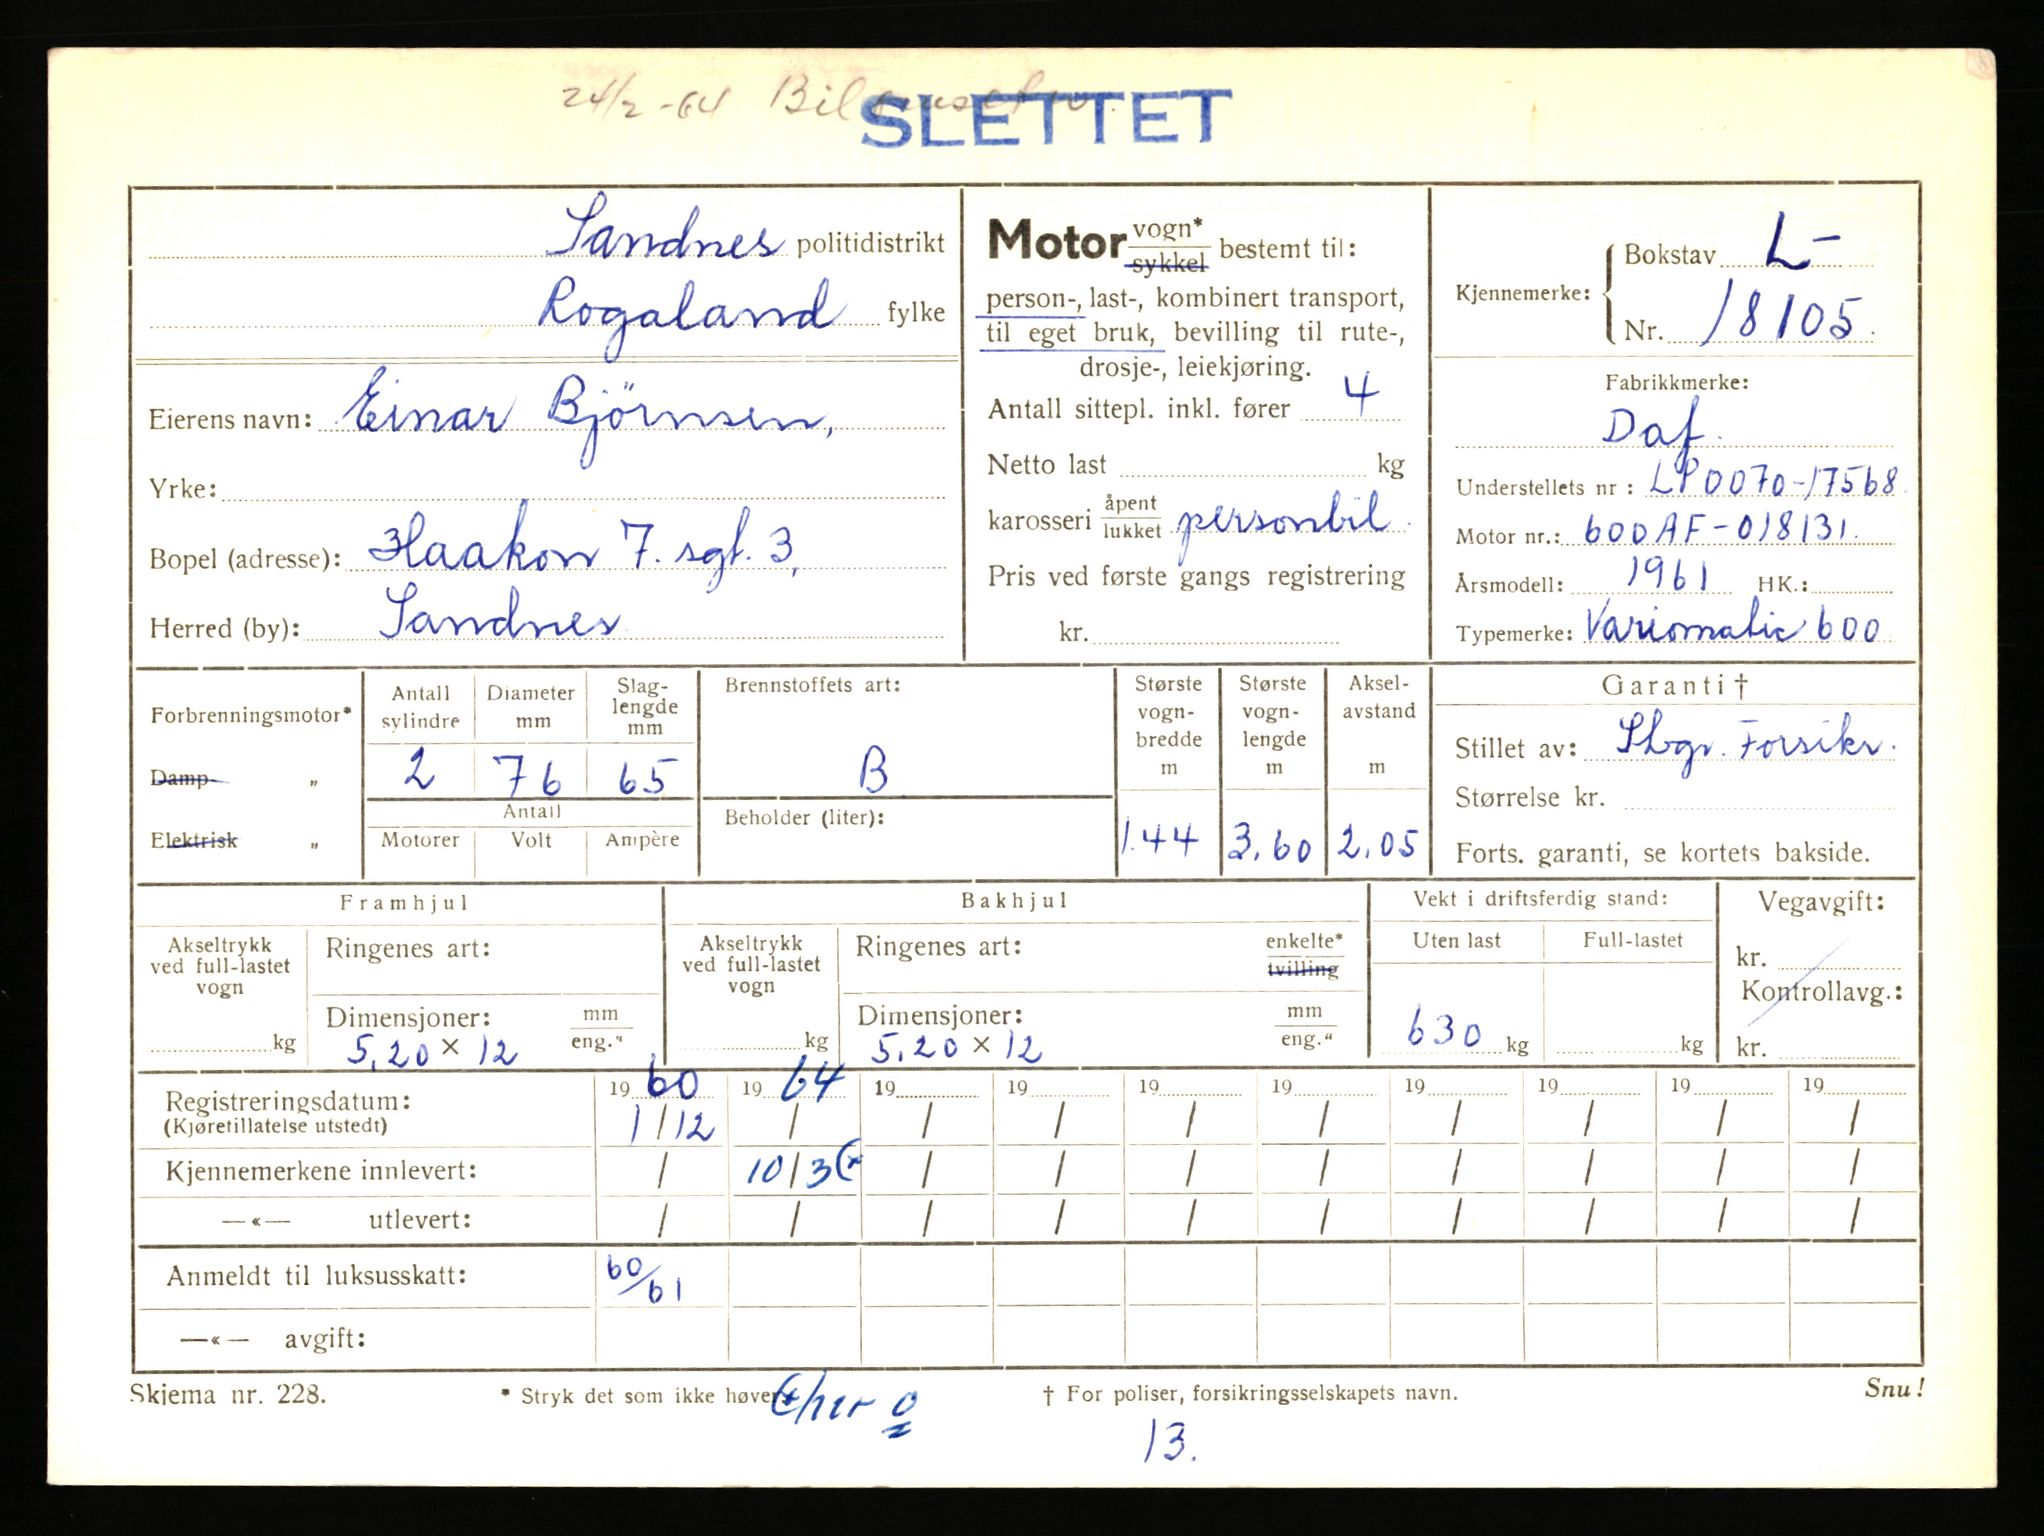 24/2 -64
SLETTET
Sandnes politidistrikt
Rogaland fylke
Eierens navn: Einar Bjørnsen,
Yrke:
Bopel (adresse): Haakon 7. sgt. 3,
Herred (by): Sandnes
Motor vogn* sykkel bestemt til:
person-, last-, kombinert transport,
til eget bruk, bevilling til rute-,
drosje-, leiekjøring.
Antall sittepl. inkl. fører 4
Netto last kg
karosseri åpent lukket personbil
Pris ved første gangs registrering
kr.
Kjennemerke: Bokstav L-
Nr. 18105
Fabrikkmerke:
Daf.
Understellets nr : LP0070-17568
Motor nr.: 600AF-018131.
Årsmodell: 1961 HK.:
Typemerke: Variomatic 600
Forbrenningsmotor*
Damp- „
Elektrisk „
Antall sylindre
2
Diameter mm
76
Slag-lengde mm
65
Antall
Motorer Volt Ampère
Brennstoffets art:
B
Beholder (liter):
Største vogn-bredde m
1.44
Største vogn-lengde m
3.60
Aksel-avstand m
2.05
Garanti †
Stillet av: Sbgr. Forsikr.
Størrelse kr.
Forts. garanti, se kortets bakside.
Framhjul
Akseltrykk ved full-lastet vogn
kg
Ringenes art:
Dimensjoner: mm eng.“
5.20 × 12
Bakhjul
Akseltrykk ved full-lastet vogn
kg
Ringenes art: enkelte* tvilling
Dimensjoner: mm eng.“
5.20 × 12
Vekt i driftsferdig stand:
Uten last Full-lastet
630 kg kg
Vegavgift:
kr.
Kontrollavg.:
kr.
Registreringsdatum: 1960 1964 19 19 19 19 19 19 19 19
(Kjøretillatelse utstedt) 1/12 / / / / / / / / /
Kjennemerkene innlevert: / 10/3 (* / / / / / / / /
—«— utlevert: / / / / / / / / / /
Anmeldt til luksusskatt: 60/61
—«— avgift:
Skjema nr. 228.
* Stryk det som ikke høver.
† For poliser, forsikringsselskapets navn.
Snu!
13.